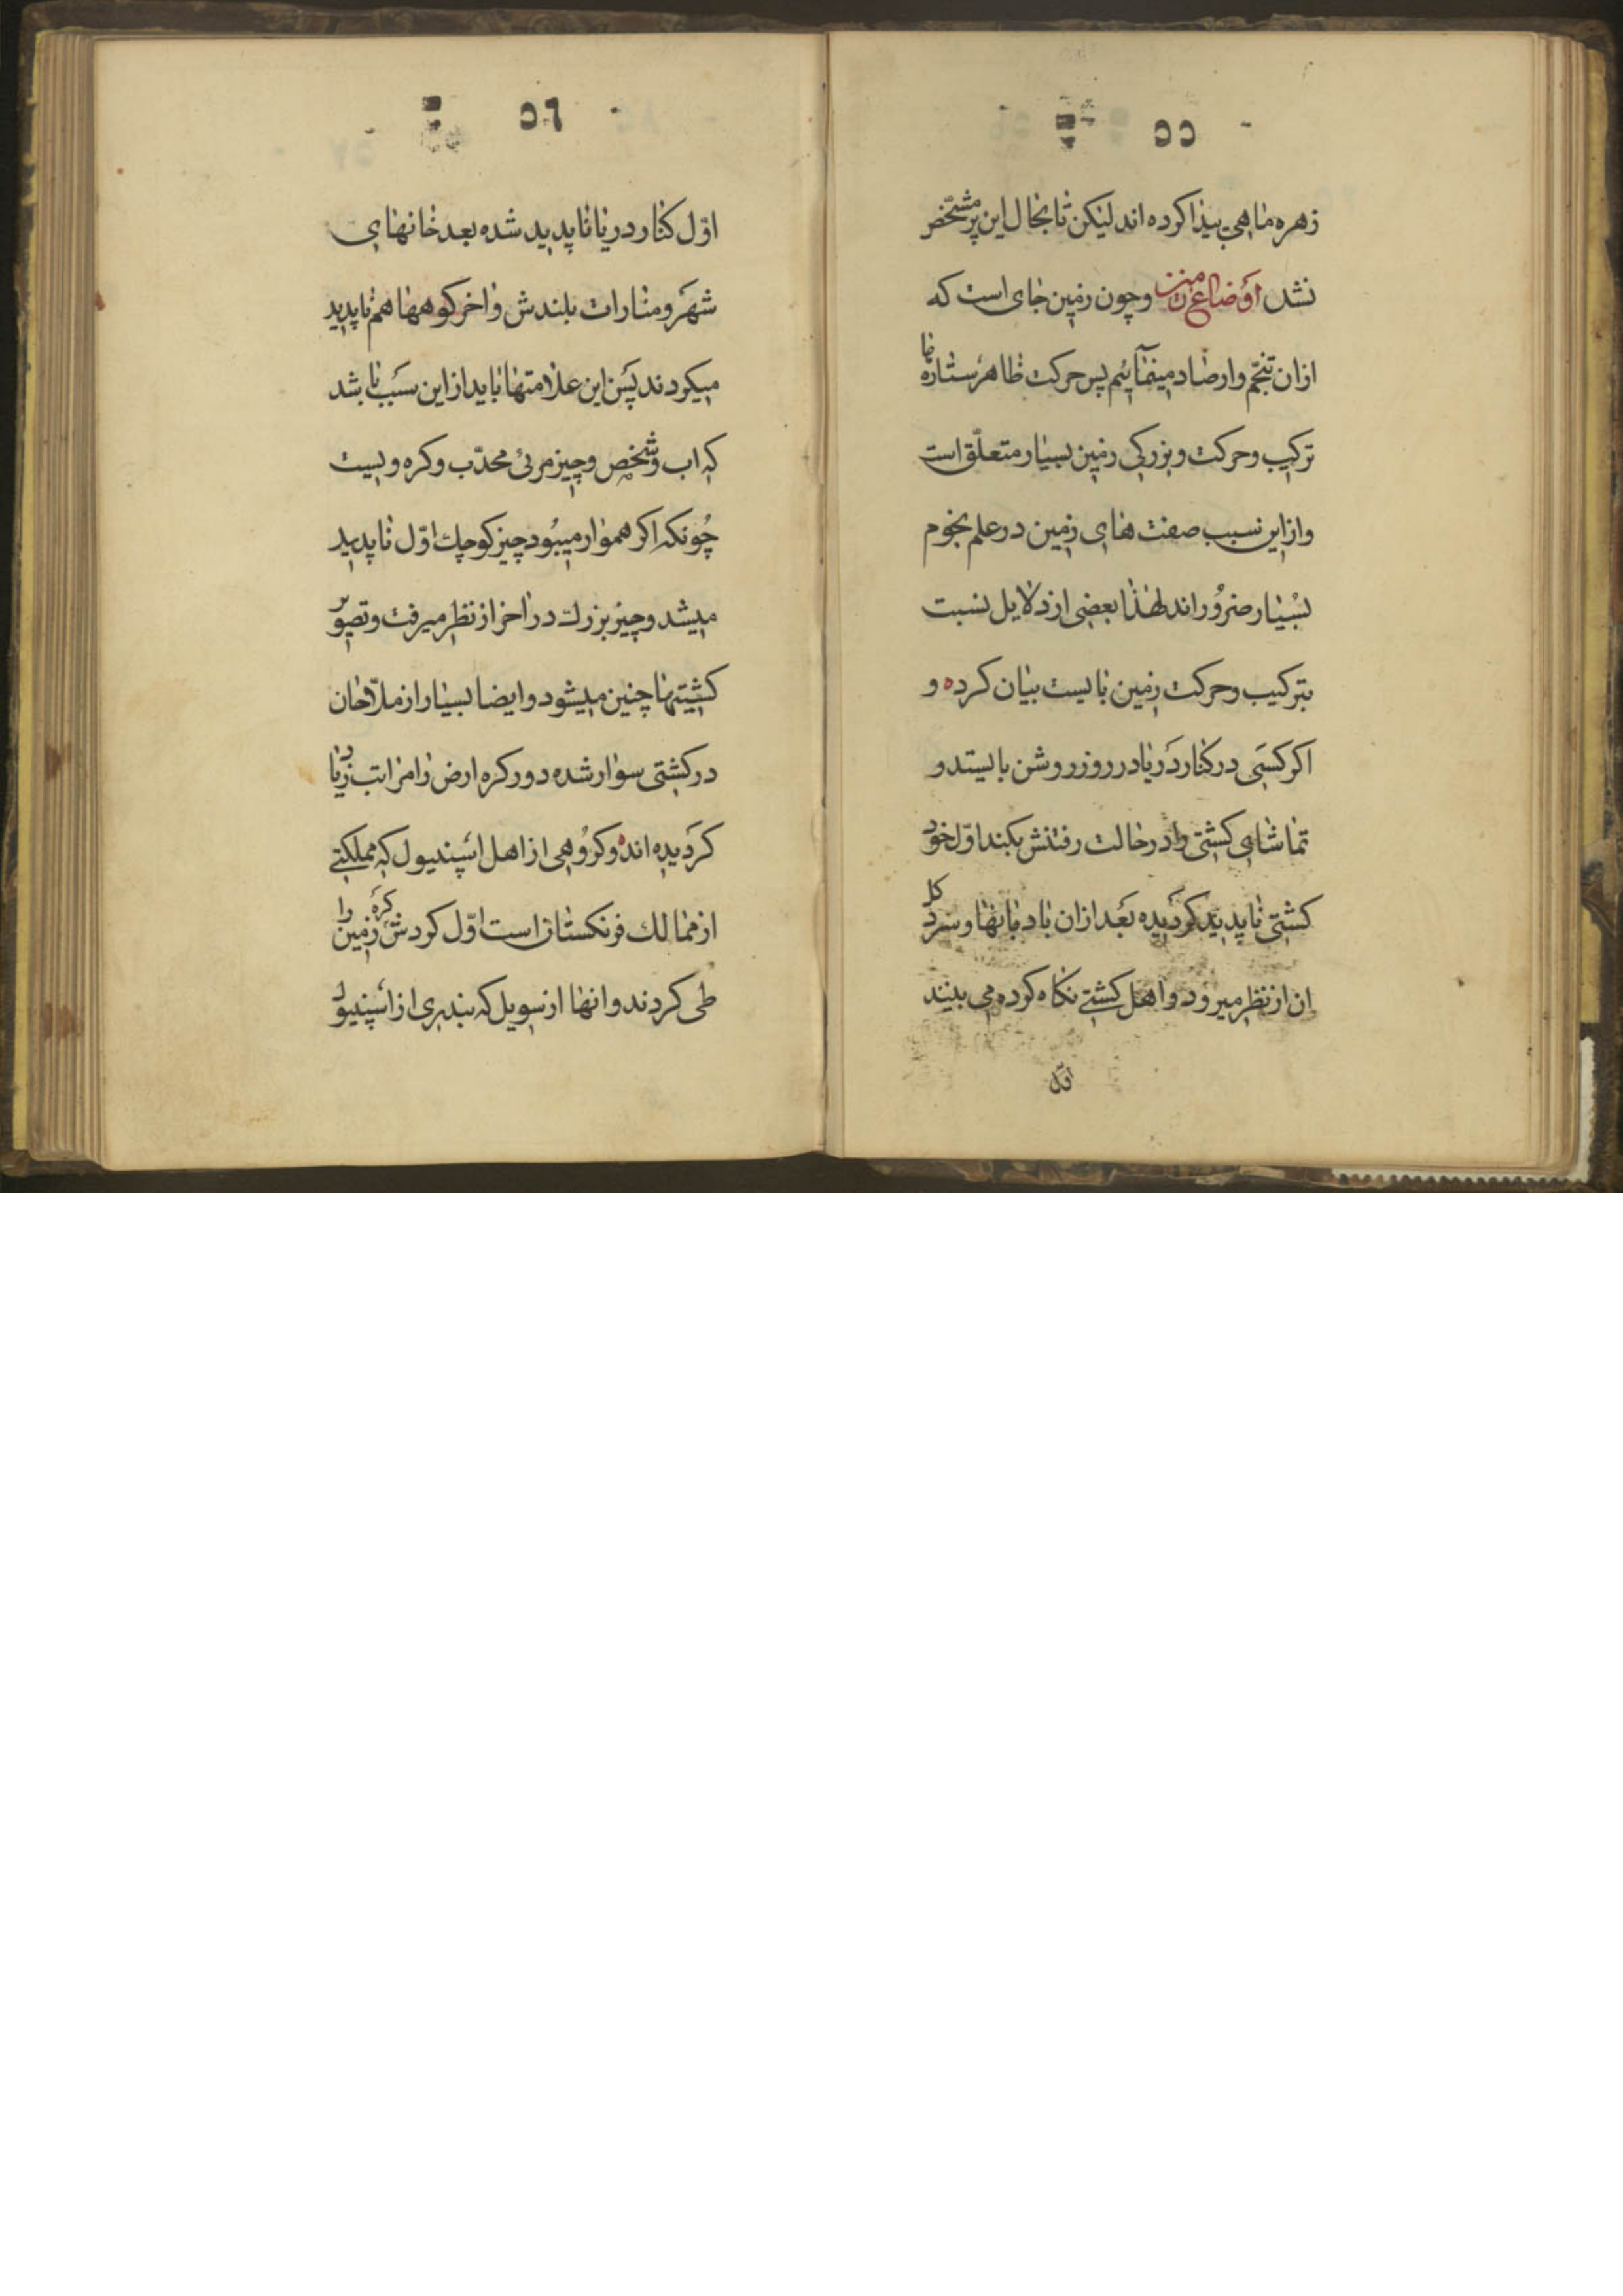 - ٥٥
زهره ماهی پیدا کرده اند لیکن تا بحال این پر مشخص
نشد اوضاع زمین و چون زمین جای است که
از ان تنجّم و ارصاد مینمائیم پس حرکت ظاهر ستاره ها
ترکیب و حرکت و بزرکی زمین بسیار متعلّق است
و از این سبب صفت های زمین در علم نجوم
بسیار ضروراند لهذا بعضی از دلایل نسبت
بترکیب و حرکت زمین بایست بیان کرده و
اکر کسی در کنار دریا در روز روشن بایستد و
تماشای کشتی را در حالت رفتنش بکند اوّل خود
کشتی ناپدید کردیده بعد از ان بادبانها و سر دکل
ان از نظر میرود و اهل کشتی نکاه کرده می بینند
اوّل
- ٥٦ -
اوّل کنار دریا ناپدید شده بعد خانهای
شهر و منارات بلندش و اخر کوهها هم ناپدید
میکردند پس این علامتها باید از این سبب باشد
که اب و شخص و چیز مرئی محدّب و کره و بیست
چونکه اکر هموار میبود چیز کوچك اوّل ناپدید
میشد و چیز بزرك در اخر از نظر میرفت و تصویر
کشتیها چنین میشود و ایضا بسیار از ملّاحان
در کشتی سوار شده دور کره ارض را مراتب دریا
کردیده اند و کروهی از اهل اسپنیول که مملکتی
از ممالك فرنکستان است اوّل کردش کره زمین را
طی کردند و انها از سویل که بندری از اسپنیول